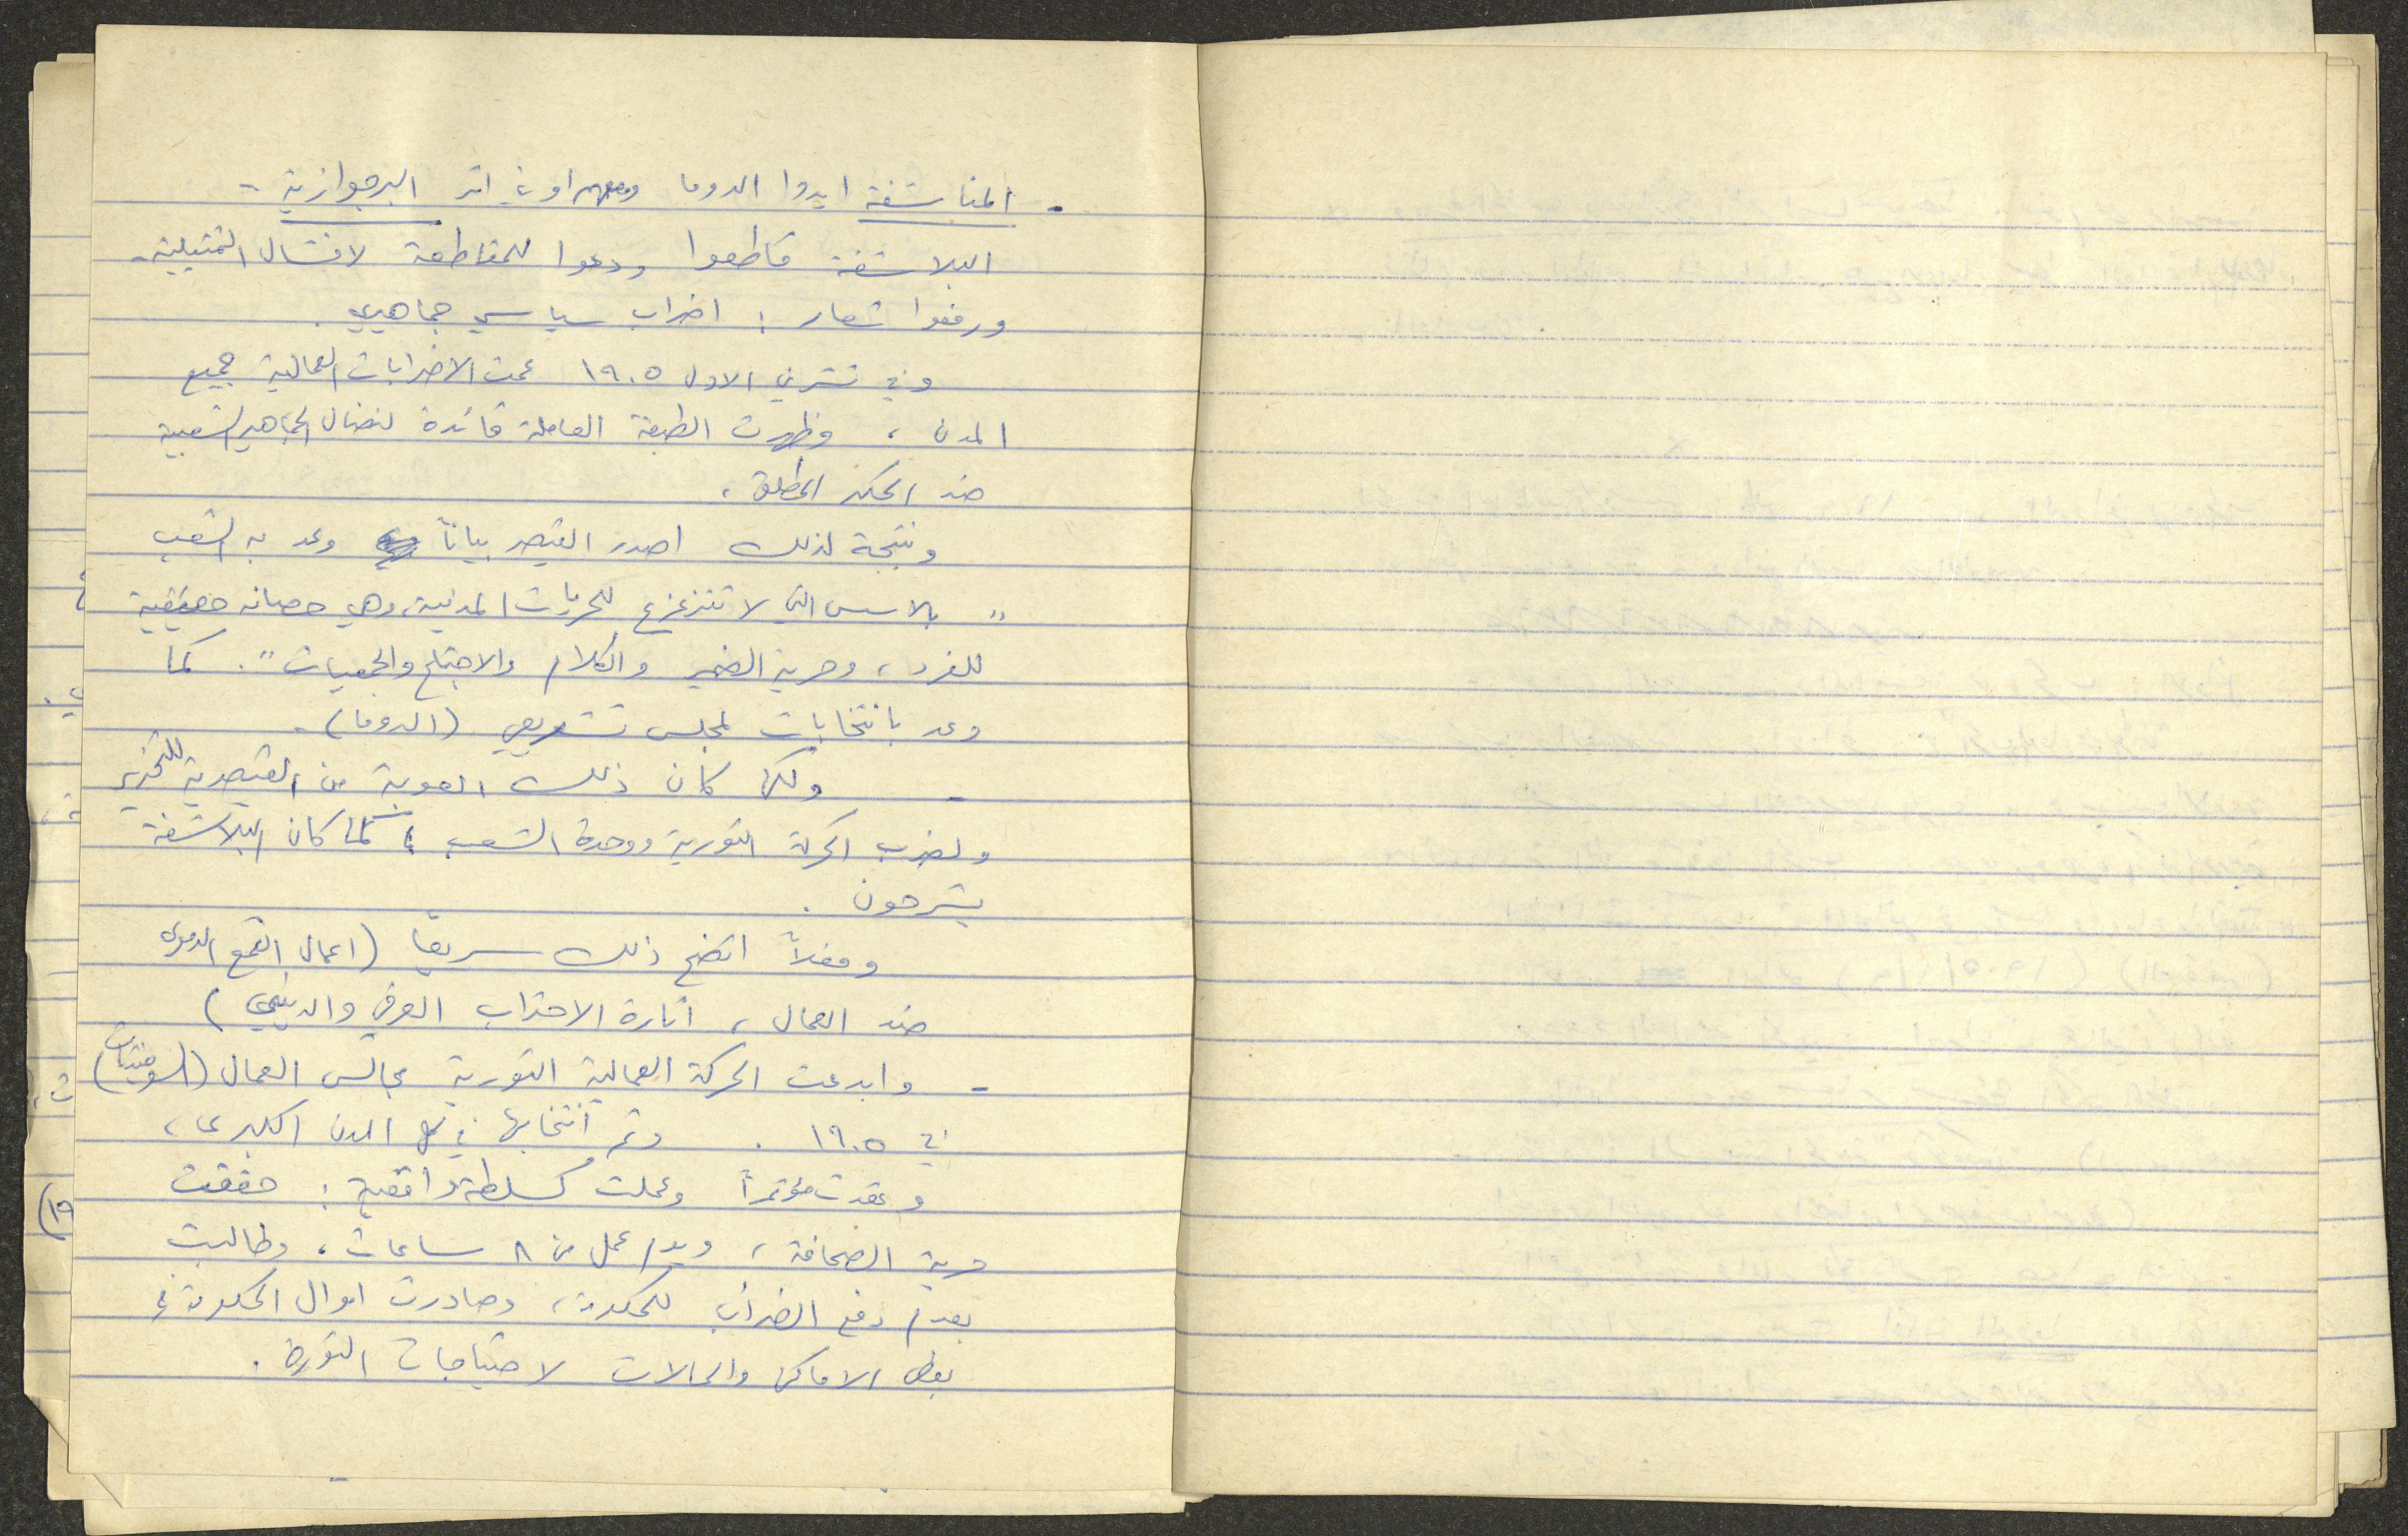 - المناشفة ايدوا الدوما وساروا في اثر البرجوازية -
البلاشفة قاطعوا ودعوا للمقاطعة لافشال التمثيلية.
ورفعوا شعار : اضراب سياسي جماهيري .
وفي تشرين الاول ١٩٠٥ عمت الاضرابات العمالية جميع
المدن ، وظهرت الطبقة العاملة قائدة لنضال الجماهير الشعبية
ضد الحكم المطلق ،
ونتيجة لذلك اصدر القيصر بياناً وعد به الشعب
" بالاسس التي لا تتزعزع للحريات المدنية، وهي حصانه حقيقية
للفرد ، وحرية الضمير والكلام والاجتماع والجمعيات " . كما
وعد بانتخابات لمجلس تشريعي (الدوما) .
- ولكن كان ذلك العوبة من القيصرية للتخدير
ولضرب الحركة الثورية ووحدة الشعب ، كما كان البلاشفة
يشرحون .
وفعلاً اتضح ذلك سريعاً (اعمال القمع الدموي
ضد العمال ، اثارة الاحتراب العرقي والديني )
- وابدعت الحركة العمالية الثورية مجالس العمال (السوفيتات)
في ١٩٠٥ . وتم انتخابها في كل المدن الكبرى ،
وعقدت مؤتمراً وعملت كسلطة واقعية : حققت
حرية الصحافة ، ويوم عمل من ٨ ساعات ، وطالبت
بعدم دفع الضرائب للحكومة ، وصادرت اموال الحكومة في
بعض الاماكن والحالات لاحتياجات الثورة .